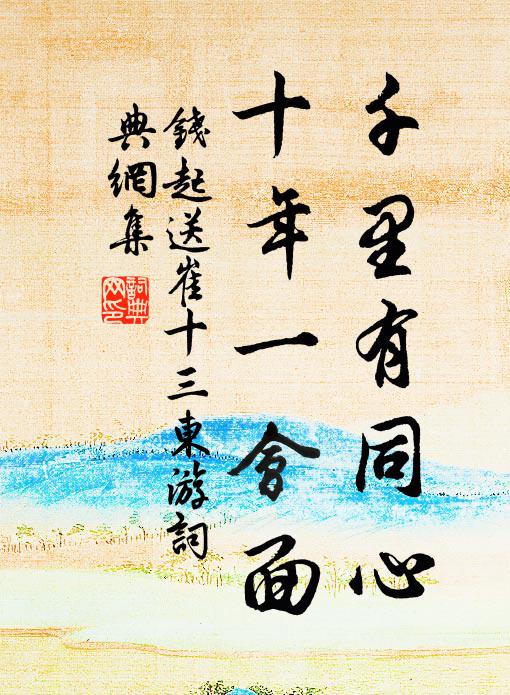 千里有同心
十年一會面
錢起送崔十三東游詞
典網集
詞典
网印